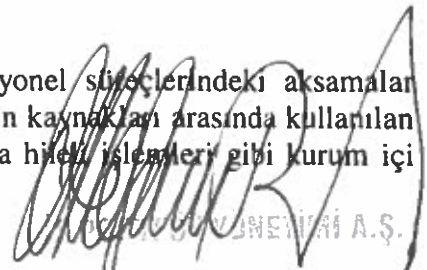 yonel süreçlerindeki aksamalar
n kaynakları arasında kullanılan
a hileli işlemleri gibi kurum içi
YÖNETİMİ A.Ş.